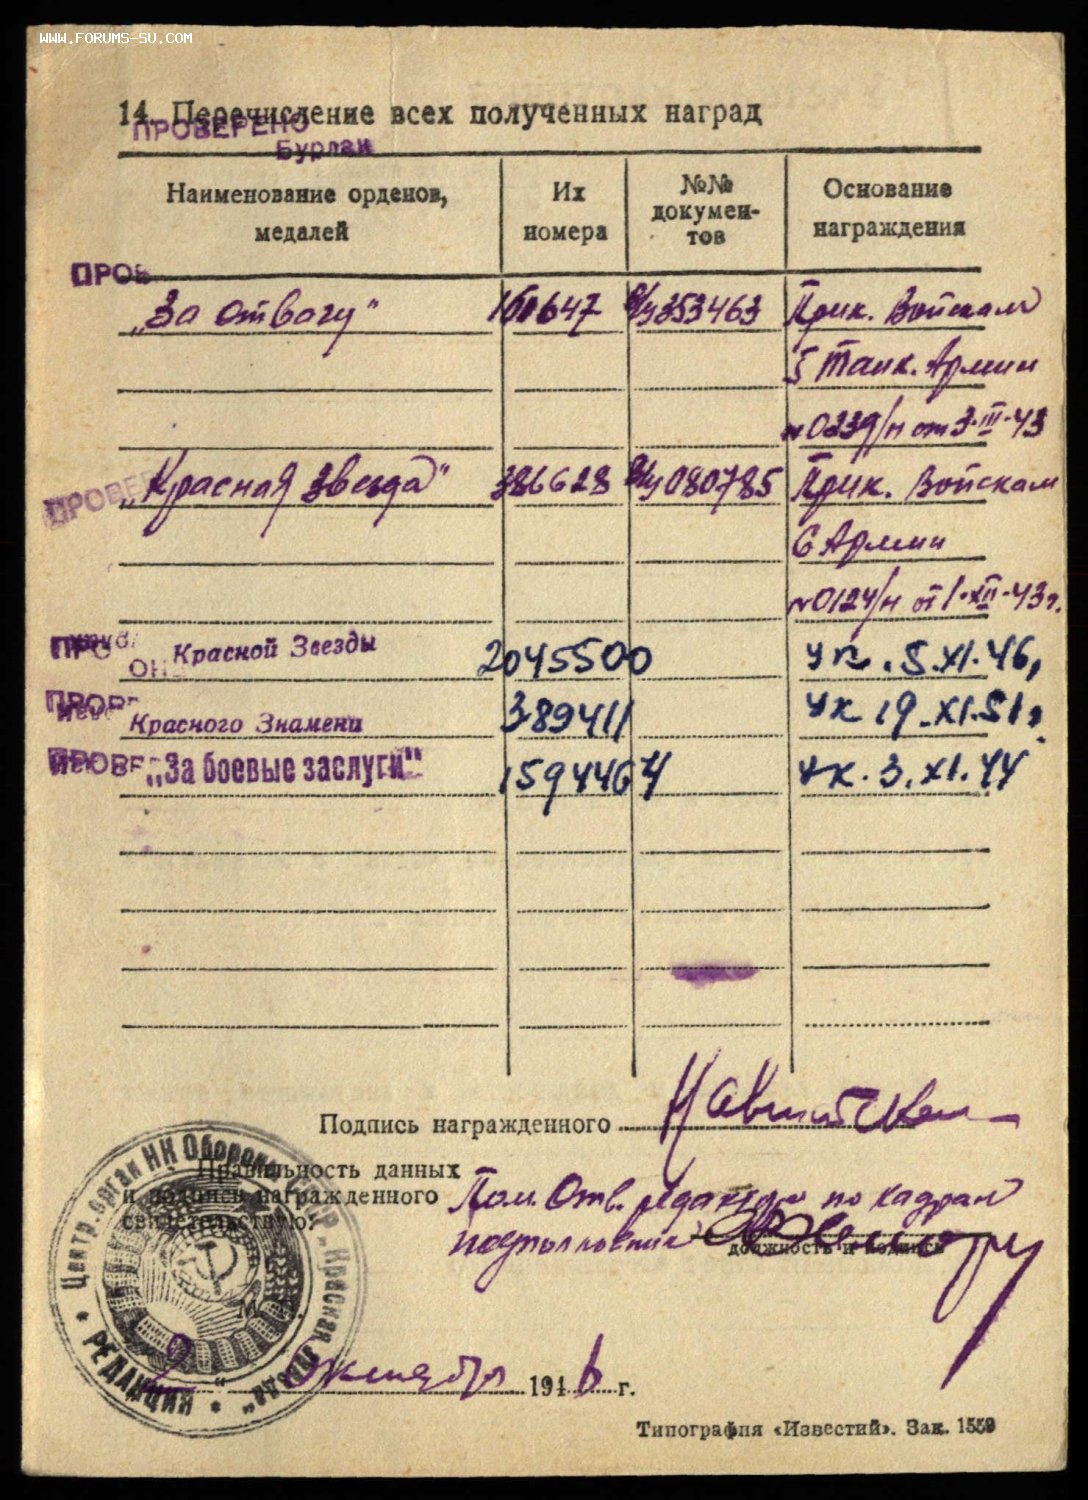 WWW.FORUMS-SU.COM
14. Перечисление всех полученных наград
ПРОВЕРЕНО
Бурлак
Наименование орденов, медалей
Их номера
№№ докумен-тов
Основание награждения
ПРОВ
„За отвагу" 161647 353463 Прик. Войскам
5 Танк. Армии
№0339/н от 3-III-43
ПРОВЕР
„Красная звезда" 386628 080785 Прик. Войскам
6 Армии
№0124/н от 1-XII-43г.
ПРО Красной Звезды 2045500 Ук. 5.XI.46,
ПРОВ Красного Знамени 389411 Ук 19.XI.51г
ПРОВЕР „За боевые заслуги" 1594467 Ук. 3.XI.44
Подпись награжденного
Правильность данных
и подпись награжденного
свидетельствую:
Пом. Отв. редактора по кадрам
подполковник
должность и подпись
Центр. орган НК Обороны СССР „Красная Звезда"
РЕДАКЦИЯ
М. П.
„2" октября 1946 г.
Типография «Известий». Зак. 1559